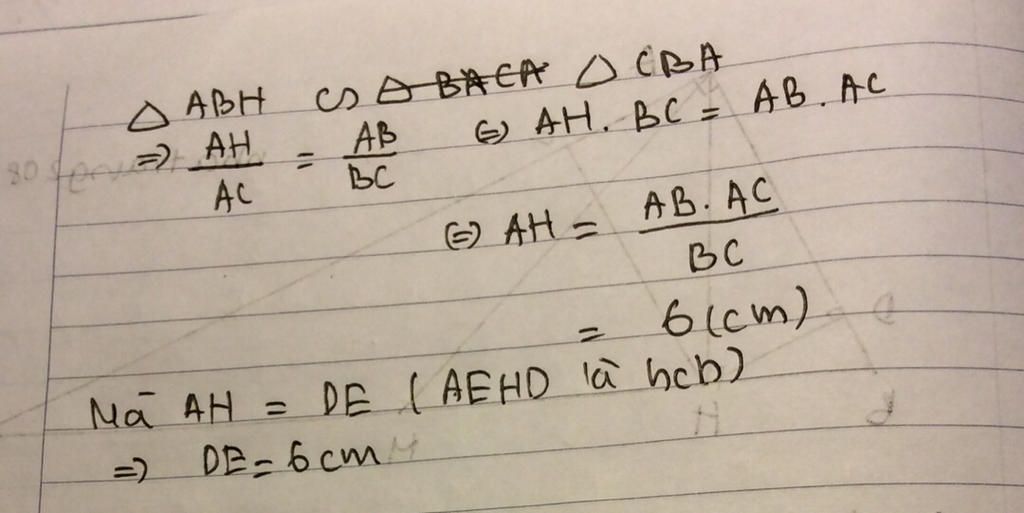 △ ABH ∽ △ BACA △ CBA
⇒ AH/AC = AB/BC ⇔ AH. BC = AB. AC
⇔ AH = AB. AC/BC
= 6(cm)
Mà AH = DE (AEHD là hcn)
⇒ DE = 6cm